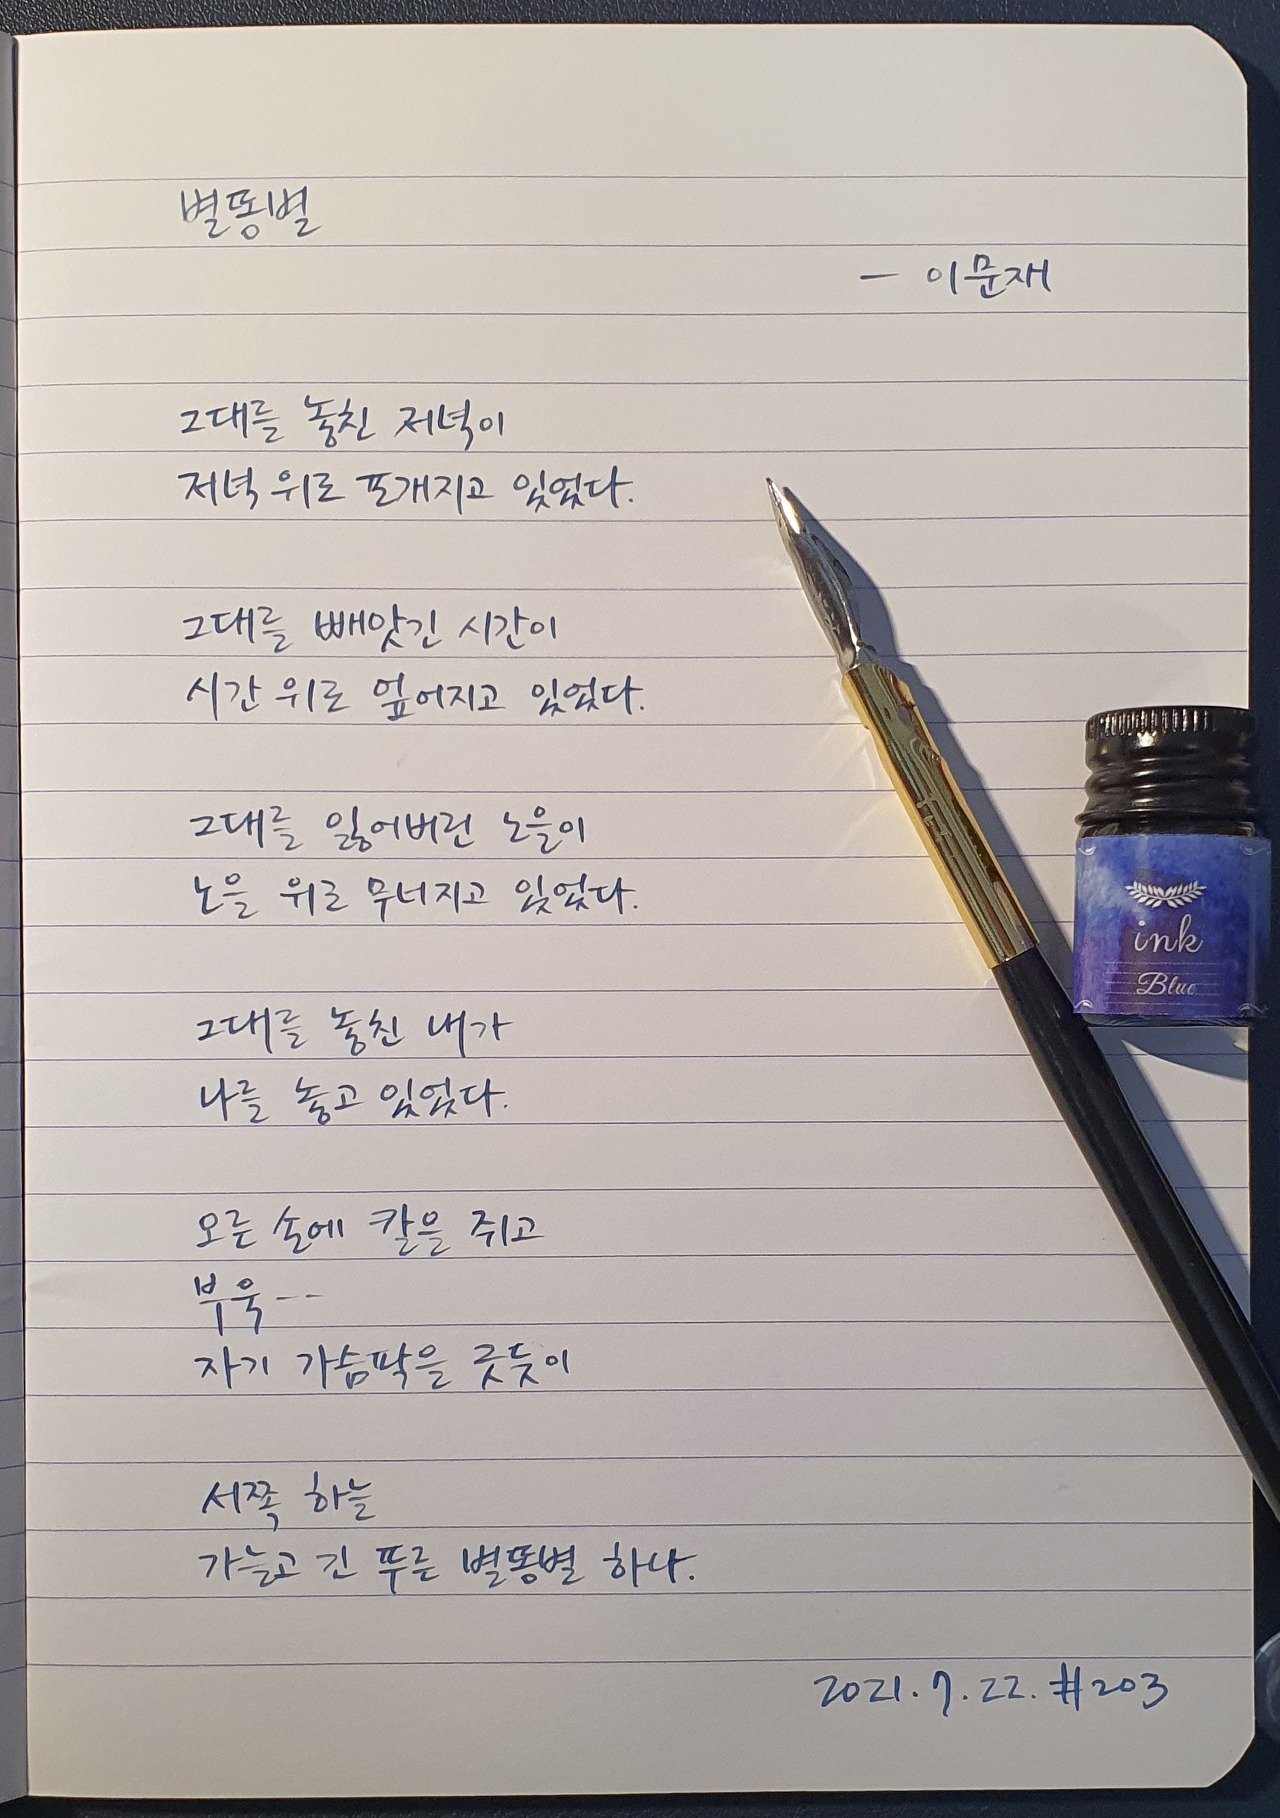 별똥별
— 이문재
그대를 놓친 저녁이
저녁 위로 포개지고 있었다.
그대를 빼앗긴 시간이
시간 위로 엎어지고 있었다.
그대를 잃어버린 노을이
노을 위로 무너지고 있었다.
그대를 놓친 내가
나를 놓고 있었다.
오른 손에 칼을 쥐고
부욱--
자기 가슴팍을 긋듯이
서쪽 하늘
가늘고 긴 푸른 별똥별 하나.
2021.7.22. #203
ink
Blue